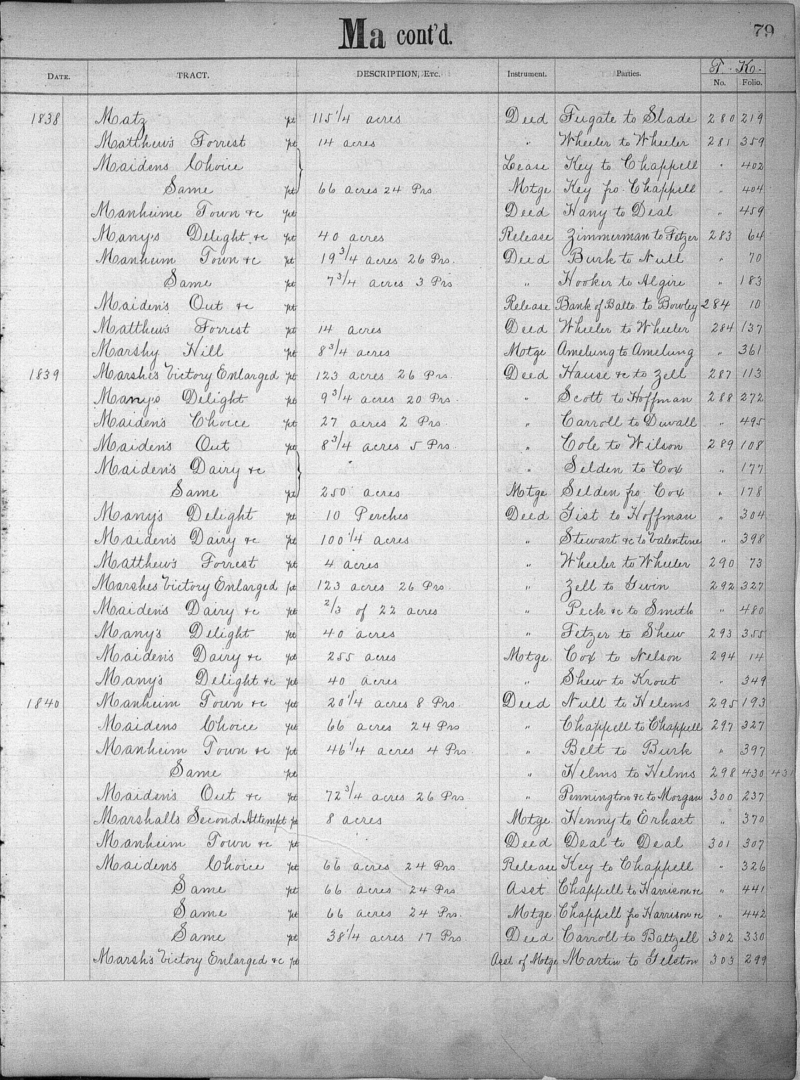 Ma cont'd. 79
DATE. TRACT. DESCRIPTION, ETC. Instrument. Parties. T. K. No. Folio.
1838 Matz pt 115 1/4 acres Deed Fugate to Slade 280 219
Matthew's Forrest pt 14 acres " Wheeler to Wheeler 281 359
Maidens Choice Lease Key to Chappell " 402
Same pt 66 acres 24 Prs Motge Key fro. Chappell " 404
Manheime Town &c pt Deed Hany to Deal " 459
Many's Delight &c pt 40 acres Release Zimmerman to Fetzer 283 64
Manheim Town &c pt 19 3/4 acres 26 Prs. Deed Burk to Null " 70
Same pt 7 3/4 acres 3 Prs " Hooker to Algire " 183
Maiden's Out &c pt Release Bank of Balto. to Bowley 284 10
Matthew's Forrest pt 14 acres Deed Wheeler to Wheeler 284 137
Marshy Hill pt 8 3/4 acres Motge Amelung to Amelung " 361
1839 Marshe's Victory Enlarged pt 123 acres 26 Prs. Deed Hause &c to Zell 287 113
Many's Delight pt 9 3/4 acres 20 Prs. " Scott to Hoffman 288 272
Maiden's Choice pt 27 acres 2 Prs. " Carroll to Duvall " 495
Maiden's Out pt 8 3/4 acres 5 Prs. " Cole to Wilson 289 108
Maiden's Dairy &c " " Selden to Cox " 177
Same pt 250 acres Motge Selden fro. Cox " 178
Many's Delight pt 10 Perches Deed Gist to Hoffman " 304
Maiden's Dairy &c pt 100 1/4 acres " Stewart &c to Valentine " 398
Matthew's Forrest pt 4 acres " Wheeler to Wheeler 290 73
Marshes Victory Enlarged pt 123 acres 26 Prs. " Zell to Gwin 292 327
Maiden's Dairy &c pt 2/3 of 22 acres " Peck &c to Smith " 480
Many's Delight pt 40 acres " Fetzer to Shew 293 355
Maiden's Dairy &c pt 255 acres Motge. Cox to Nelson 294 14
Many's Delight &c pt 40 acres " Shew to Krout " 349
1840 Manheim Town &c pt 20 1/4 acres 8 Prs. Deed Null to Helms 295 193
Maidens Choice pt 66 acres 24 Prs " Chappell to Chappell 297 327
Manheim Town &c pt 46 1/4 acres 4 Prs. " Belt to Burk " 397
Same pt " Helms to Helms 298 430 431
Maiden's Out &c pt 72 3/4 acres 26 Prs " Pennington &c to Morgan 300 237
Marshalls Second Attempt pt 8 acres Motge Henny to Erhart " 370
Manheim Town &c pt Deed Deal to Deal 301 307
Maidens Choice pt 66 acres 24 Prs Release Key to Chappell " 326
Same pt 66 acres 24 Prs Asst Chappell to Harrison &c " 441
Same pt 66 acres 24 Prs. Motge Chappell fro Harrison &c " 442
Same pt 38 1/4 acres 17 Prs. Deed Carroll to Battzell 302 330
Marsh's Victory Enlarged &c pt Asst of Motge Martin to Gelston 303 299